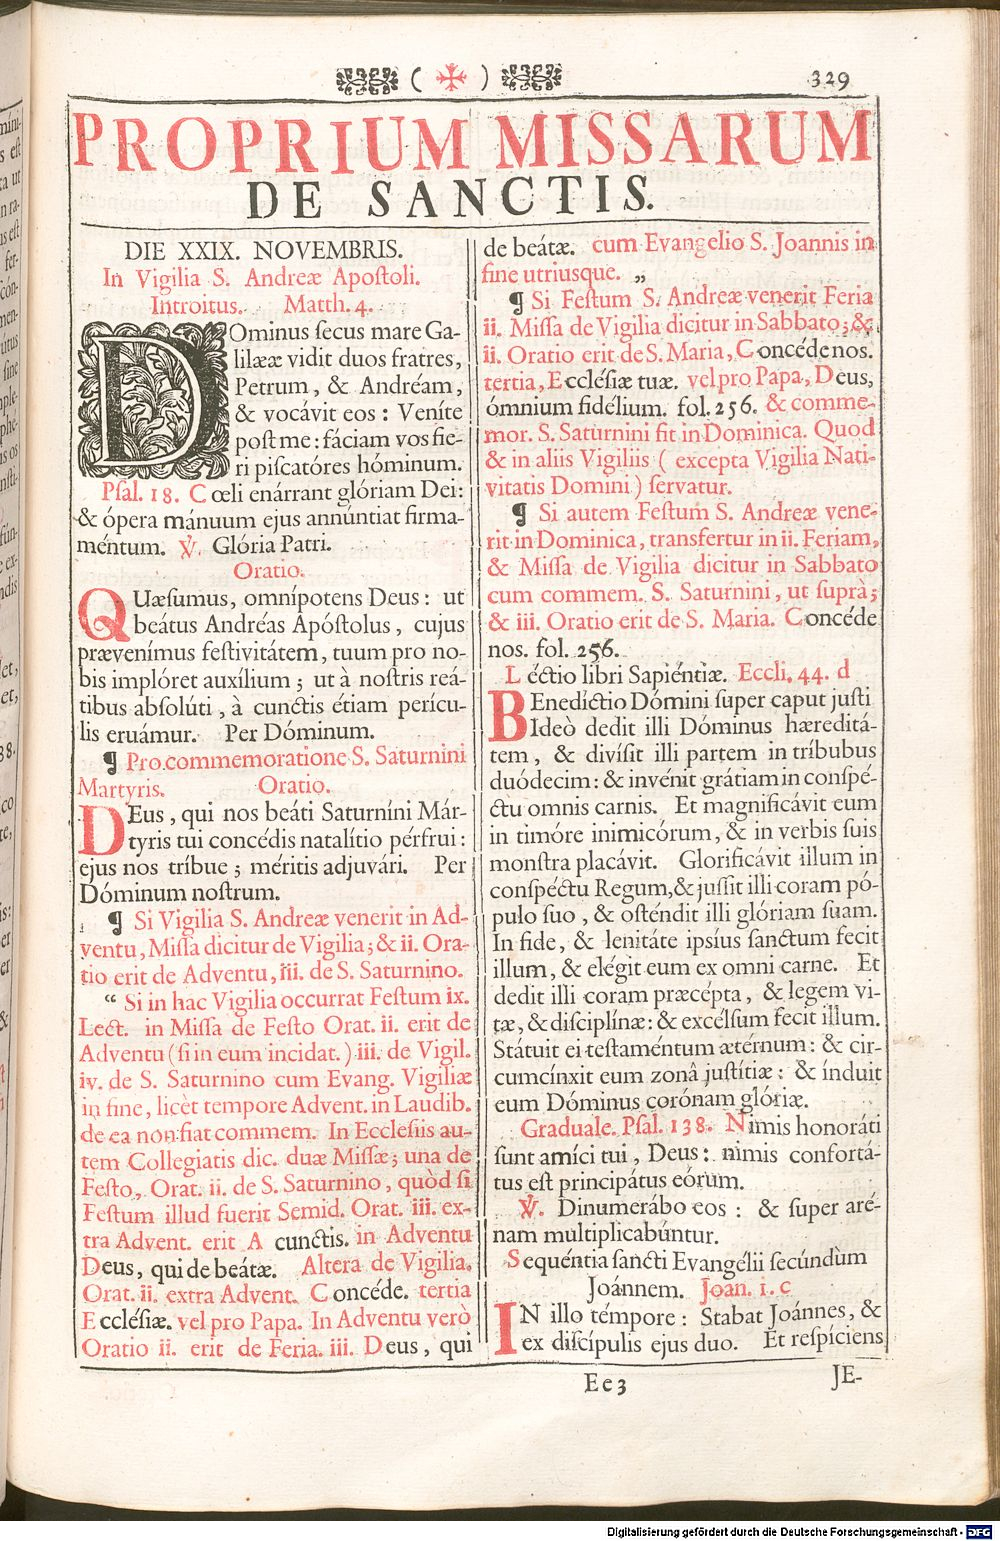 ( ✠ ) 329
PROPRIUM MISSARUM
DE SANCTIS.
DIE XXIX. NOVEMBRIS.
In Vigilia S. Andreæ Apoſtoli.
Introitus. Matth. 4.
DOminus ſecus mare Ga-
lilææ vidit duos fratres,
Petrum, & Andréam,
& vocávit eos: Veníte
poſt me: fáciam vos fíe-
ri piſcatóres hóminum.
Pſal. 18. Cœli enárrant glóriam Dei:
& ópera mánuum ejus annúntiat firma-
méntum. ℣. Glória Patri.
Oratio.
QUæſumus, omnípotens Deus: ut
beátus Andréas Apóſtolus, cujus
prævenímus feſtivitátem, tuum pro no-
bis implóret auxílium; ut à noſtris reá-
tibus abſolúti, à cunctis étiam perícu-
lis eruámur. Per Dóminum.
¶ Pro commemoratione S. Saturnini
Martyris. Oratio.
DEus, qui nos beáti Saturníni Már-
tyris tui concédis natalítio pérfrui:
ejus nos tríbue; méritis adjuvári. Per
Dóminum noſtrum.
¶ Si Vigilia S. Andreæ venerit in Ad-
ventu, Miſſa dicitur de Vigilia; & ii. Ora-
tio erit de Adventu, iii. de S. Saturnino.
“ Si in hac Vigilia occurrat Feſtum ix.
Lect. in Miſſa de Feſto Orat. ii. erit de
Adventu (ſi in eum incidat.) iii. de Vigil.
iv. de S. Saturnino cum Evang. Vigiliæ
in fine, licèt tempore Advent. in Laudib.
de ea non fiat commem. In Eccleſiis au-
tem Collegiatis dic. duæ Miſſæ; una de
Feſto, Orat. ii. de S. Saturnino, quòd ſi
Feſtum illud fuerit Semid. Orat. iii. ex-
tra Advent. erit A cunctis. in Adventu
Deus, qui de beátæ. Altera de Vigilia.
Orat. ii. extra Advent. Concéde. tertia
Eccléſiæ. vel pro Papa. In Adventu verò
Oratio ii. erit de Feria. iii. Deus, qui
de beátæ. cum Evangelio S. Joannis in
fine utriusque. „
¶ Si Feſtum S. Andreæ venerit Feria
ii. Miſſa de Vigilia dicitur in Sabbato; &
ii. Oratio erit de S. Maria, Concéde nos.
tertia, Eccléſiæ tuæ. vel pro Papa, Deus,
ómnium fidélium. fol. 256. & comme-
mor. S. Saturnini fit in Dominica. Quod
& in aliis Vigiliis ( excepta Vigilia Nati-
vitatis Domini ) ſervatur.
¶ Si autem Feſtum S. Andreæ vene-
rit in Dominica, transfertur in ii. Feriam,
& Miſſa de Vigilia dicitur in Sabbato
cum commem. S. Saturnini, ut ſuprà;
& iii. Oratio erit de S. Maria. Concéde
nos. fol. 256.
Léctio libri Sapiéntiæ. Eccli. 44. d
BEnedíctio Dómini ſuper caput juſti
Ideò dedit illi Dóminus hæreditá-
tem, & divíſit illi partem in tríbubus
duódecim: & invénit grátiam in conſpé-
ctu omnis carnis. Et magnificávit eum
in timóre inimicórum, & in verbis ſuis
monſtra placávit. Glorificávit illum in
conſpéctu Regum, & juſſit illi coram pó-
pulo ſuo, & oſténdit illi glóriam ſuam.
In fide, & lenitáte ipsíus ſanctum fecit
illum, & elégit eum ex omni carne. Et
dedit illi coram præcépta, & legem vi-
tæ, & diſciplínæ: & excélſum fecit illum.
Státuit ei teſtaméntum ætérnum: & cir-
cumcínxit eum zonâ juſtítiæ: & índuit
eum Dóminus corónam glóriæ.
Graduale. Pſal. 138. Nimis honoráti
ſunt amíci tui, Deus: nimis confortá-
tus eſt principátus eórum.
℣. Dinumerábo eos: & ſuper aré-
nam multiplicabúntur.
Sequéntia ſancti Evangélii ſecúndùm
Joánnem. Joan. 1. c
IN illo témpore: Stabat Joánnes, &
ex diſcípulis ejus duo. Et reſpíciens
Ee 3 JE-
Digitalisierung gefördert durch die Deutsche Forschungsgemeinschaft - DFG